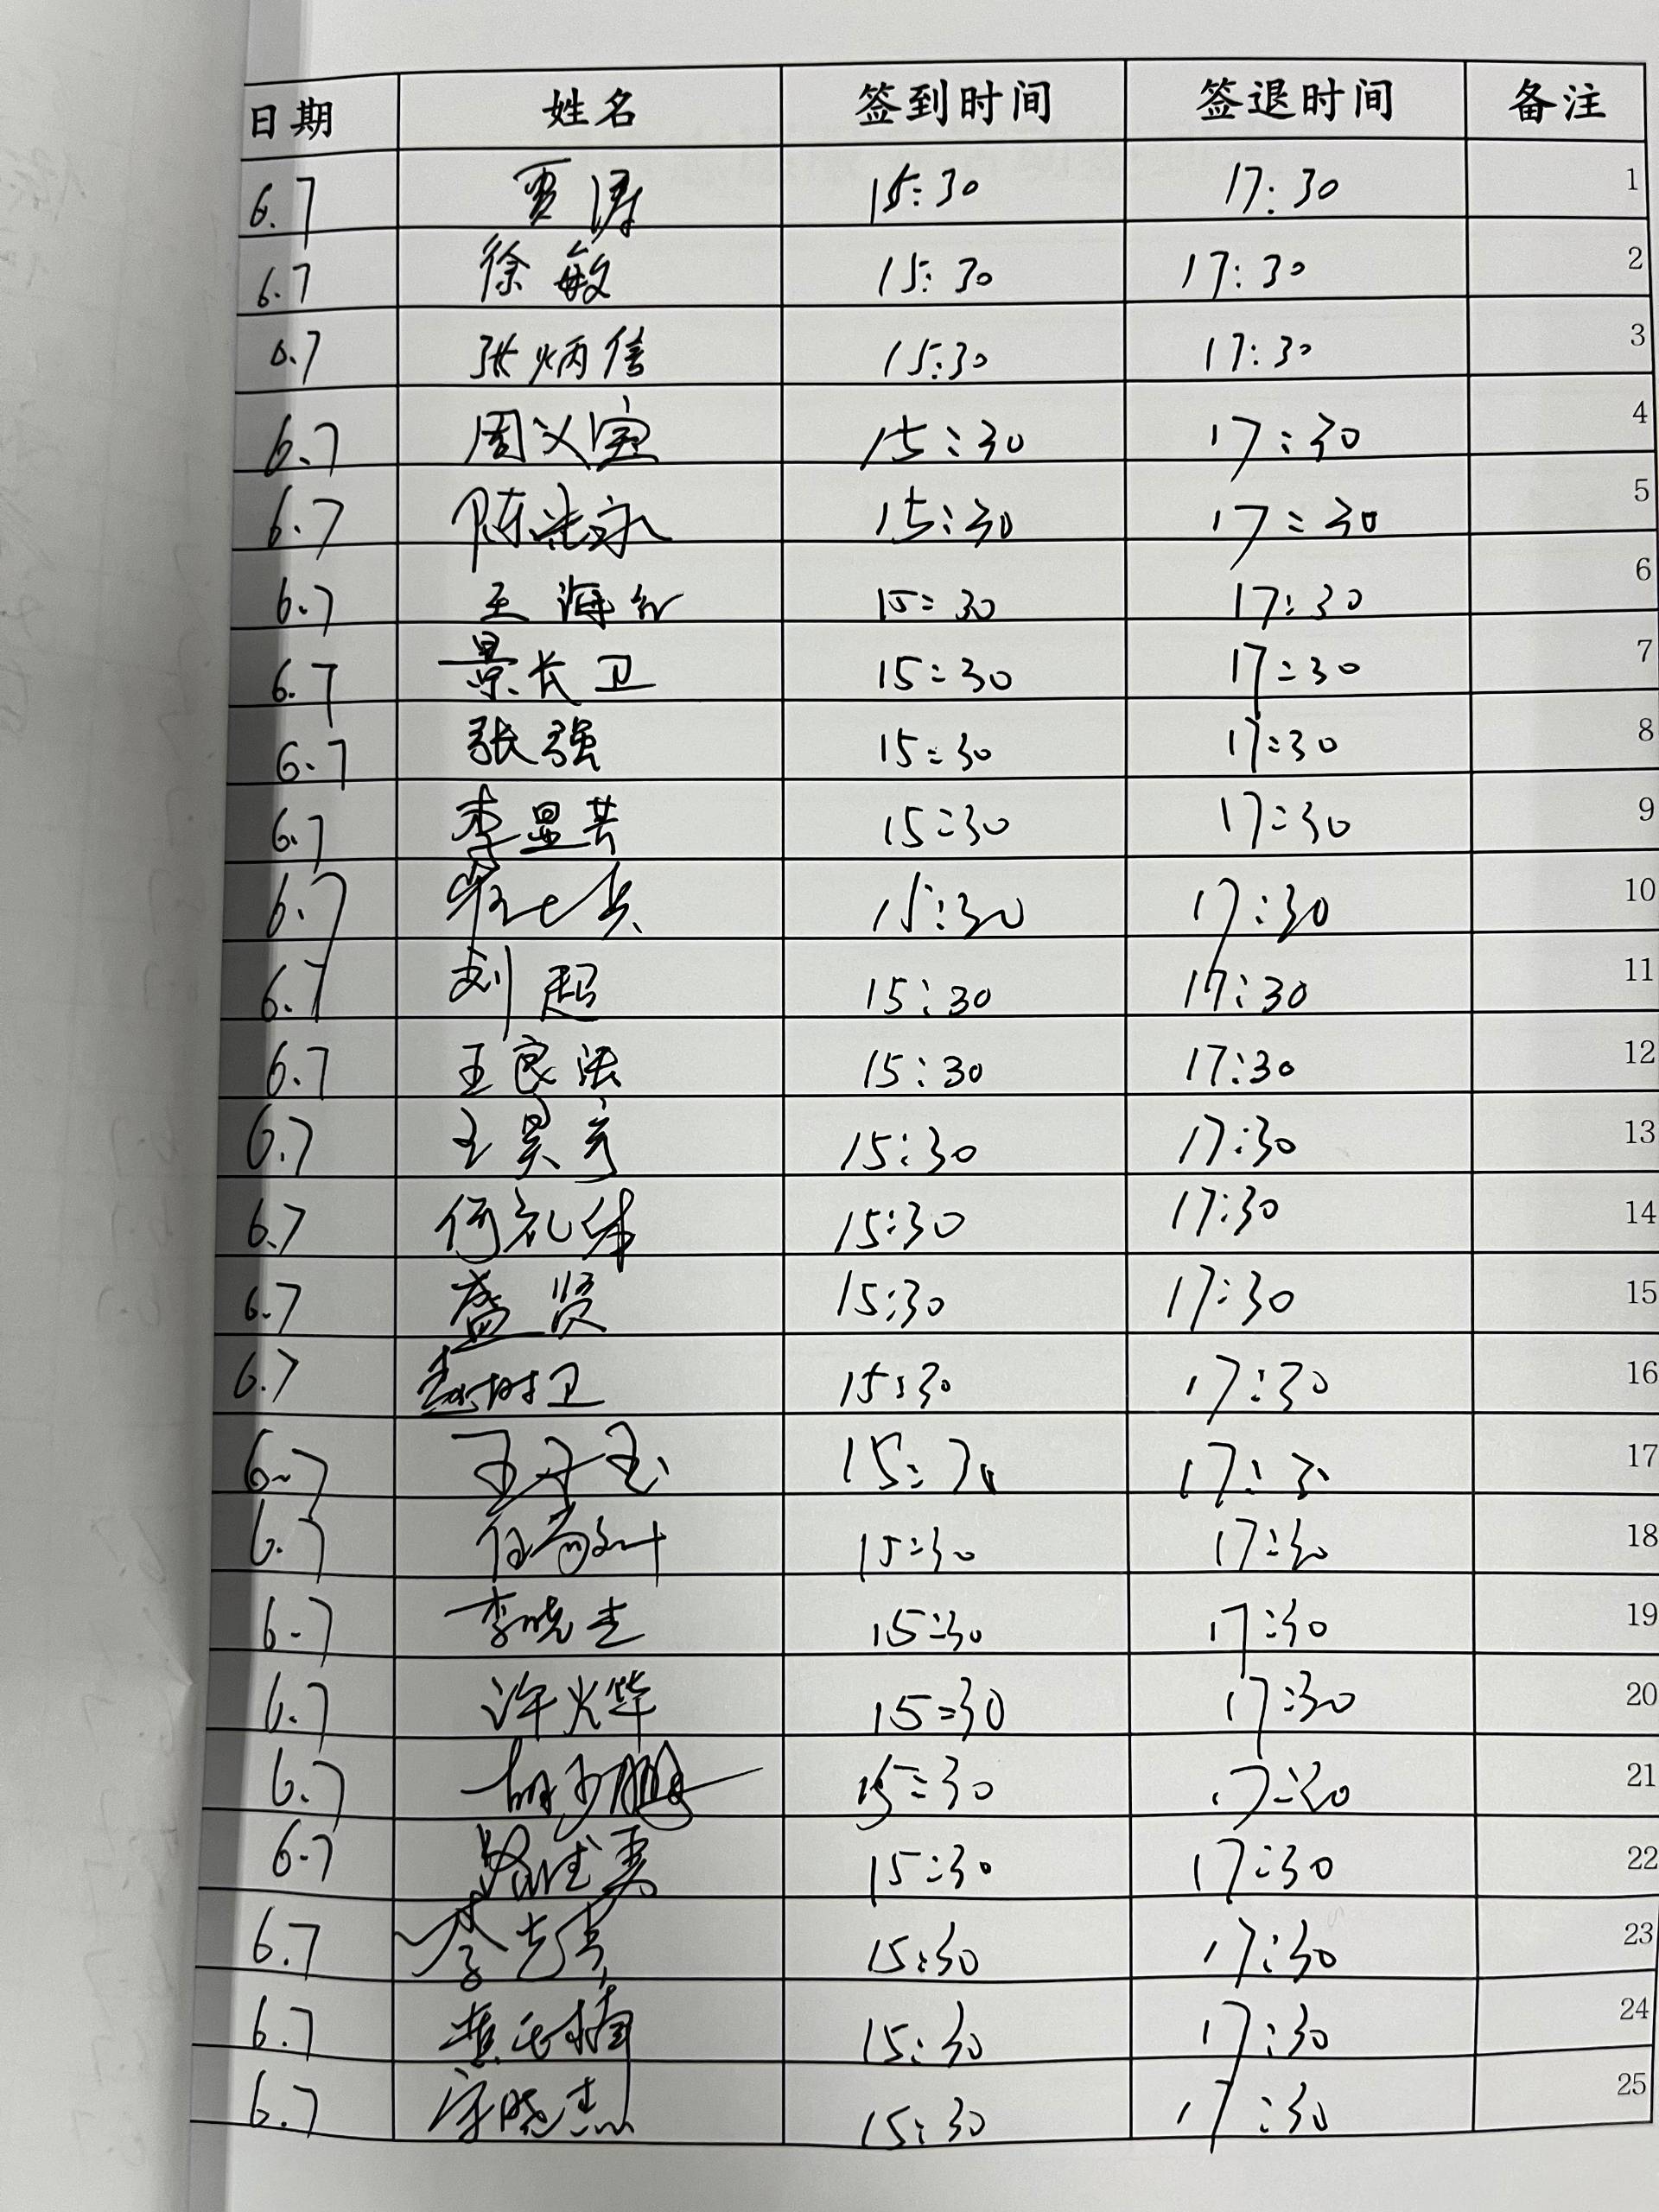 日期 姓名 签到时间 签退时间 备注
6.7 贾涛 15:30 17:30 1
6.7 徐敏 15:30 17:30 2
6.7 张炳信 15:30 17:30 3
6.7 周义宝 15:30 17:30 4
6.7 陈 永 15:30 17:30 5
6.7 王海红 15:30 17:30 6
6.7 景长卫 15:30 17:30 7
6.7 张强 15:30 17:30 8
6.7 李显芸 15:30 17:30 9
6.7 15:30 17:30 10
6.7 刘超 15:30 17:30 11
6.7 王良法 15:30 17:30 12
6.7 王昊彦 15:30 17:30 13
6.7 何礼华 15:30 17:30 14
6.7 盛贤 15:30 17:30 15
6.7 赵树卫 15:30 17:30 16
6.7 王子玉 15:30 17:30 17
6.7 任 15:30 17:30 18
6.7 李晓 15:30 17:30 19
6.7 许火华 15:30 17:30 20
6.7 胡 鹏 15:30 17:30 21
6.7 路 15:30 17:30 22
6.7 李 15:30 17:30 23
6.7 黄 楠 15:30 17:30 24
6.7 宋晓杰 15:30 17:30 25